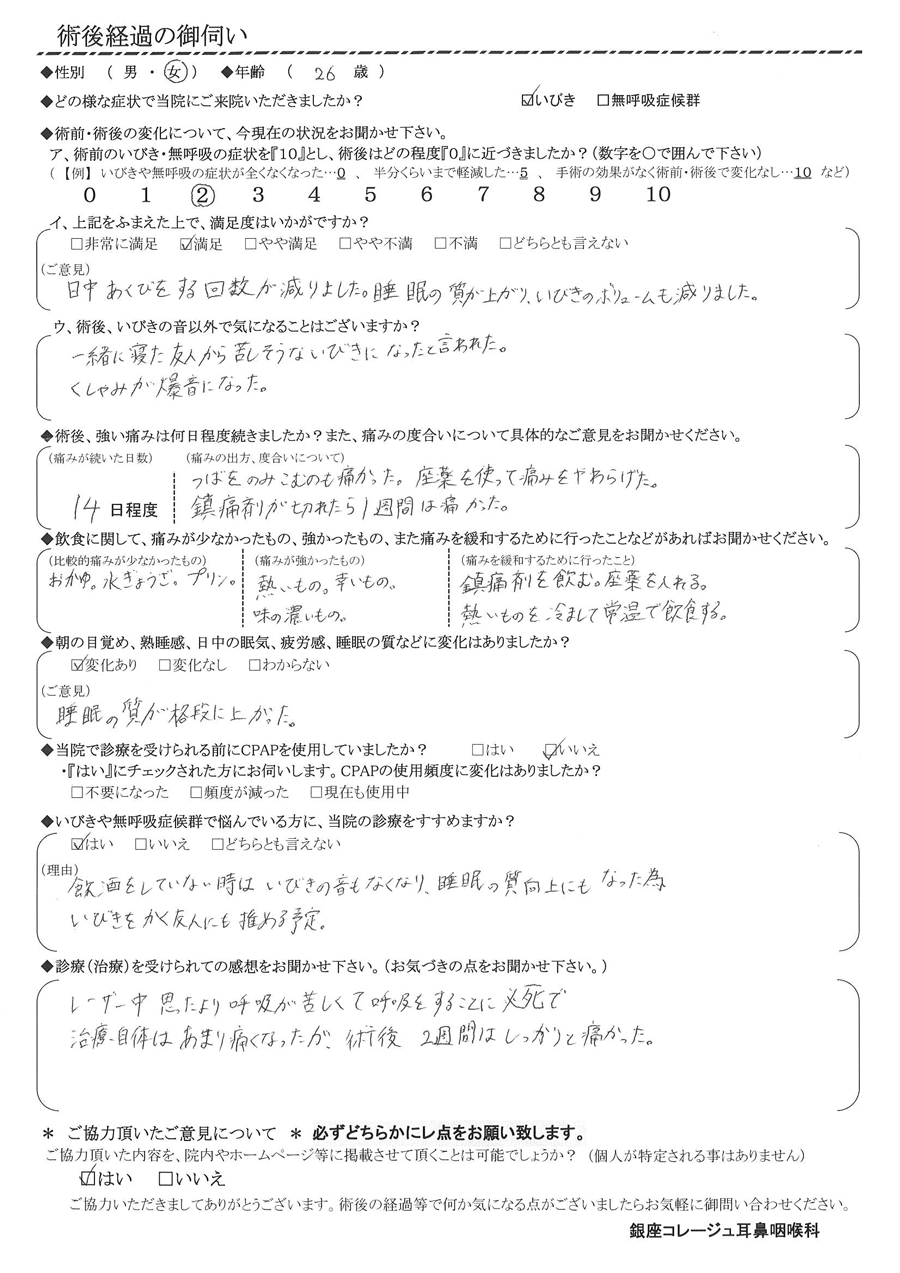 術後経過の御伺い
◆性別 （ 男 ・ 女 ） ◆年齢 （ 26 歳 ）
◆どの様な症状で当院にご来院いただきましたか？ ☑いびき □無呼吸症候群
◆術前・術後の変化について、今現在の状況をお聞かせ下さい。
ア、術前のいびき・無呼吸の症状を『10』とし、術後はどの程度『0』に近づきましたか？（数字を〇で囲んで下さい）
（ 【例】 いびきや無呼吸の症状が全くなくなった…0 、 半分くらいまで軽減した…5 、 手術の効果がなく術前・術後で変化なし…10 など）
0 1 2 3 4 5 6 7 8 9 10
イ、上記をふまえた上で、満足度はいかがですか？
□非常に満足 ☑満足 □やや満足 □やや不満 □不満 □どちらとも言えない
（ご意見）
日中あくびをする回数が減りました。睡眠の質が上がり、いびきのボリュームも減りました。
ウ、術後、いびきの音以外で気になることはございますか？
一緒に寝た友人から苦しそうないびきになったと言われた。
くしゃみが爆音になった。
◆術後、強い痛みは何日程度続きましたか？また、痛みの度合いについて具体的なご意見をお聞かせください。
（痛みが続いた日数） （痛みの出方、度合いについて）
つばをのみこむのも痛かった。座薬を使って痛みをやわらげた。
14 日程度 鎮痛剤が切れたら1週間は痛かった。
◆飲食に関して、痛みが少なかったもの、強かったもの、また痛みを緩和するために行ったことなどがあればお聞かせください。
（比較的痛みが少なかったもの） （痛みが強かったもの） （痛みを緩和するために行ったこと）
おかゆ。水ぎょうざ。プリン。 熱いもの。辛いもの。 鎮痛剤を飲む。座薬を入れる。
味の濃いもの。 熱いものを冷まして常温で飲食する。
◆朝の目覚め、熟睡感、日中の眠気、疲労感、睡眠の質などに変化はありましたか？
☑変化あり □変化なし □わからない
（ご意見）
睡眠の質が格段に上がった。
◆当院で診療を受けられる前にCPAPを使用していましたか？ □はい ☑いいえ
・『はい』にチェックされた方にお伺いします。CPAPの使用頻度に変化はありましたか？
□不要になった □頻度が減った □現在も使用中
◆いびきや無呼吸症候群で悩んでいる方に、当院の診療をすすめますか？
☑はい □いいえ □どちらとも言えない
（理由）
飲酒をしていない時はいびきの音もなくなり、睡眠の質向上にもなった為
いびきをかく友人にも推める予定。
◆診療（治療）を受けられての感想をお聞かせ下さい。（お気づきの点をお聞かせ下さい。）
レーザー中思たより呼吸が苦しくて呼吸をすることに必死で
治療自体はあまり痛くなったが、術後 2週間はしっかりと痛かった。
＊ ご協力頂いたご意見について ＊ 必ずどちらかにレ点をお願い致します。
ご協力頂いた内容を、院内やホームページ等に掲載させて頂くことは可能でしょうか？ （個人が特定される事はありません）
☑はい □いいえ
ご協力いただきましてありがとうございます。術後の経過等で何か気になる点がございましたらお気軽に御問い合わせください。
銀座コレージュ耳鼻咽喉科